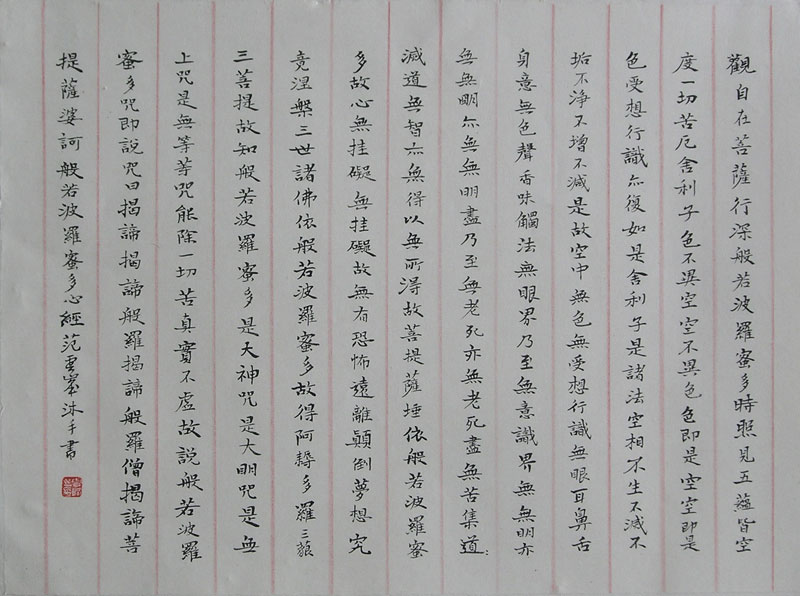 觀自在菩薩行深般若波羅蜜多時照見五蘊皆空
度一切苦厄舍利子色不異空空不異色色即是空空即是
色受想行識亦復如是舍利子是諸法空相不生不滅不
垢不淨不增不減是故空中無色無受想行識無眼耳鼻舌
身意無色聲香味觸法無眼界乃至無意識界無無明亦
無無明亦無無明盡乃至無老死亦無老死盡無苦集道
滅道無智亦無得以無所得故菩提薩埵依般若波羅蜜
多故心無挂礙無挂礙故無有恐怖遠離顛倒夢想究
竟涅槃三世諸佛依般若波羅蜜多故得阿耨多羅三藐
三菩提故知般若波羅蜜多是大神咒是大明咒是無
上咒是無等等咒能除一切苦真實不虛故說般若波羅
蜜多咒即說咒曰揭諦揭諦般羅揭諦般羅僧揭諦菩
提薩婆訶般若波羅蜜多心經范雲峯沐手書